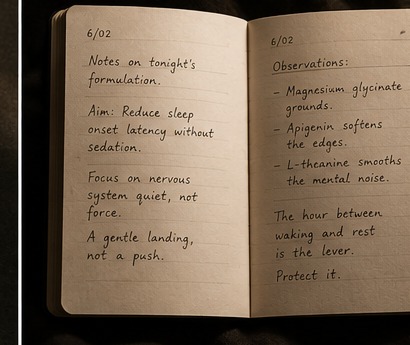 6/02
Notes on tonight's
formulation.
Aim: Reduce sleep
onset latency without
sedation.
Focus on nervous
system quiet, not
force.
A gentle landing,
not a push.
6/02
Observations:
- Magnesium glycinate
grounds.
- Apigenin softens
the edges.
- L-theanine smooths
the mental noise.
The hour between
waking and rest
is the lever.
Protect it.